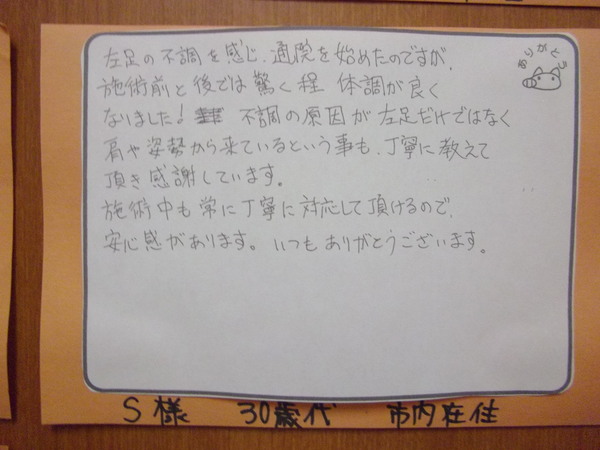 左足の不調を感じ、通院を始めたのですが、
施術前と後では驚く程 体調が良く
なりました! 不調の原因が左足だけではなく
肩や姿勢から来ているという事も、丁寧に教えて
頂き感謝しています。
施術中も常に丁寧に対応して頂けるので、
安心感があります。いつもありがとうございます。
ありがとう
S様 30歳代 市内在住